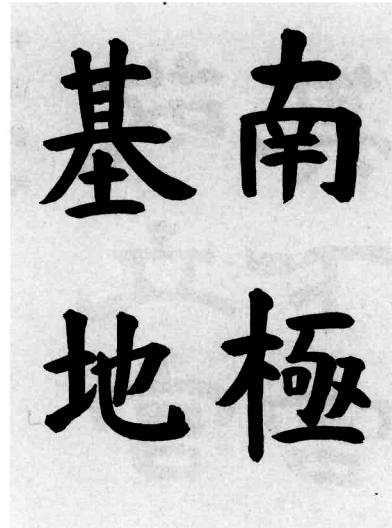 南極
基地